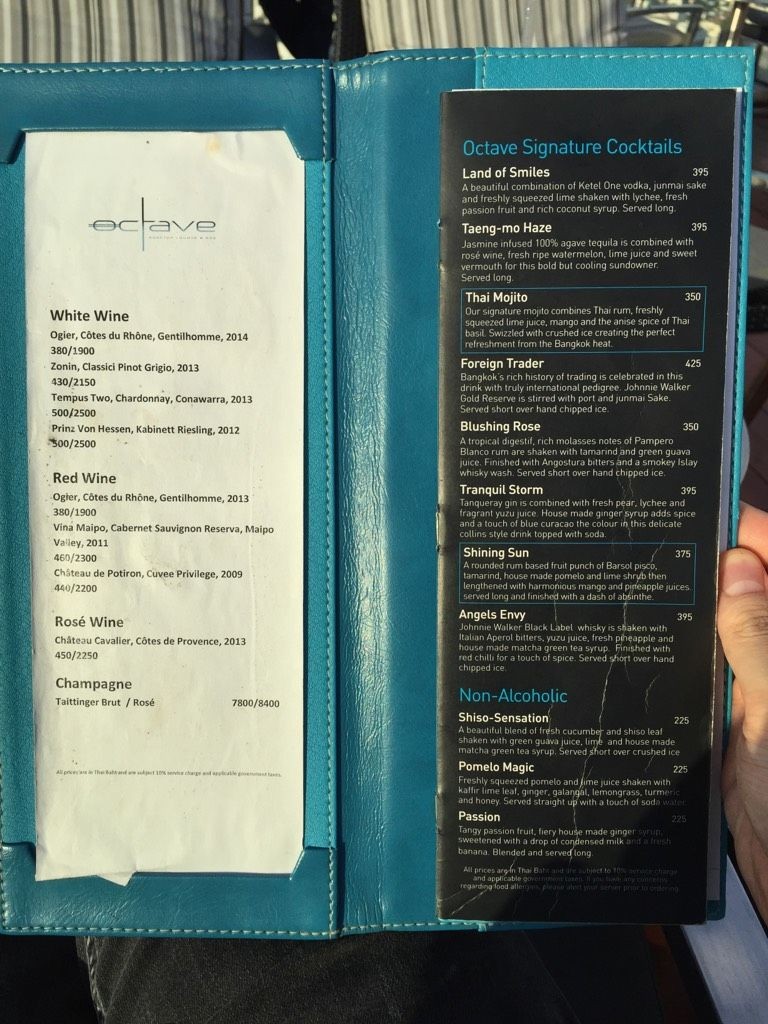 octave
ROOFTOP LOUNGE & BAR
White Wine
Ogier, Côtes du Rhône, Gentilhomme, 2014
380/1900
Zonin, Classici Pinot Grigio, 2013
430/2150
Tempus Two, Chardonnay, Conawarra, 2013
500/2500
Prinz Von Hessen, Kabinett Riesling, 2012
500/2500
Red Wine
Ogier, Côtes du Rhône, Gentilhomme, 2013
380/1900
Vina Maipo, Cabernet Sauvignon Reserva, Maipo
Valley, 2011
460/2300
Château de Potiron, Cuvee Privilege, 2009
440/2200
Rosé Wine
Château Cavalier, Côtes de Provence, 2013
450/2250
Champagne
Taittinger Brut / Rosé 7800/8400
All prices are in Thai Baht and are subject 10% service charge and applicable government taxes.
Octave Signature Cocktails
Land of Smiles 395
A beautiful combination of Ketel One vodka, junmai sake
and freshly squeezed lime shaken with lychee, fresh
passion fruit and rich coconut syrup. Served long.
Taeng-mo Haze 395
Jasmine infused 100% agave tequila is combined with
rosé wine, fresh ripe watermelon, lime juice and sweet
vermouth for this bold but cooling sundowner.
Served long.
Thai Mojito 350
Our signature mojito combines Thai rum, freshly
squeezed lime juice, mango and the anise spice of Thai
basil. Swizzled with crushed ice creating the perfect
refreshment from the Bangkok heat.
Foreign Trader 425
Bangkok's rich history of trading is celebrated in this
drink with truly international pedigree. Johnnie Walker
Gold Reserve is stirred with port and junmai Sake.
Served short over hand chipped ice.
Blushing Rose 350
A tropical digestif, rich molasses notes of Pampero
Blanco rum are shaken with tamarind and green guava
juice. Finished with Angostura bitters and a smokey Islay
whisky wash. Served short over hand chipped ice.
Tranquil Storm 395
Tanqueray gin is combined with fresh pear, lychee and
fragrant yuzu juice. House made ginger syrup adds spice
and a touch of blue curacao the colour in this delicate
collins style drink topped with soda.
Shining Sun 375
A rounded rum based fruit punch of Barsol pisco,
tamarind, house made pomelo and lime shrub then
lengthened with harmonious mango and pineapple juices.
served long and finished with a dash of absinthe.
Angels Envy 395
Johnnie Walker Black Label whisky is shaken with
Italian Aperol bitters, yuzu juice, fresh pineapple and
house made matcha green tea syrup. Finished with
red chilli for a touch of spice. Served short over hand
chipped ice.
Non-Alcoholic
Shiso-Sensation 225
A beautiful blend of fresh cucumber and shiso leaf
shaken with green guava juice, lime and house made
matcha green tea syrup. Served short over crushed ice
Pomelo Magic 225
Freshly squeezed pomelo and lime juice shaken with
kaffir lime leaf, ginger, galangal, lemongrass, turmeric
and honey. Served straight up with a touch of soda water.
Passion 225
Tangy passion fruit, fiery house made ginger syrup,
sweetened with a drop of condensed milk and a fresh
banana. Blended and served long.
All prices are in Thai Baht and are subject to 10% service charge
and applicable government taxes. If you have any concerns
regarding food allergies, please alert your server prior to ordering.